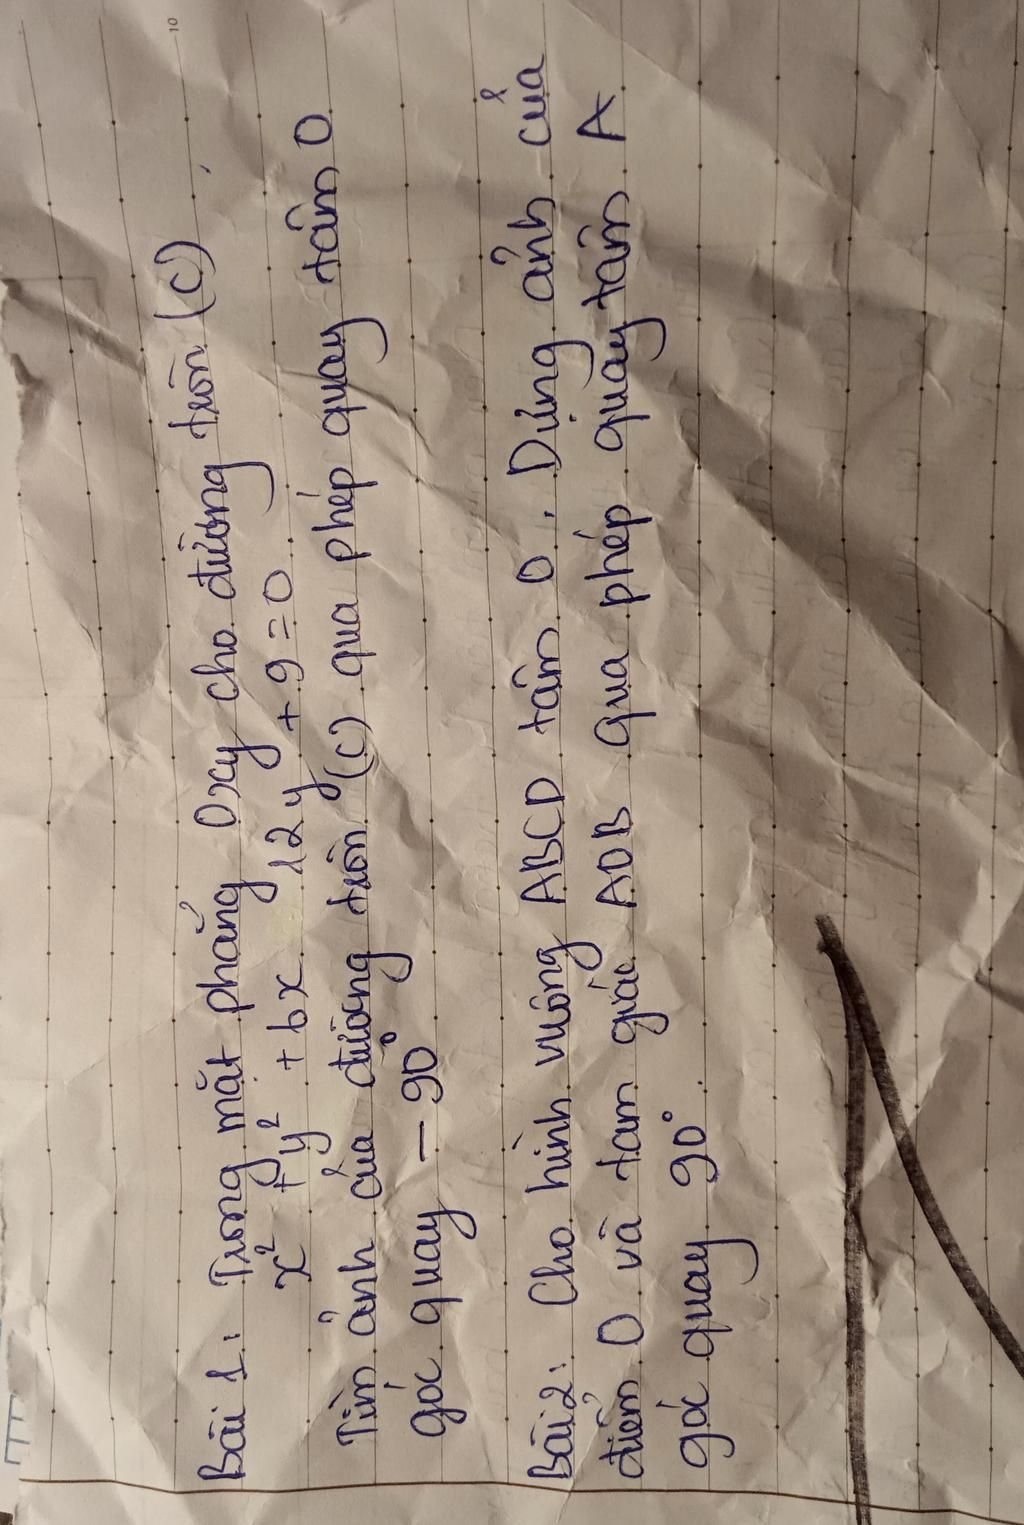 Bài 1: Trong mặt phẳng Oxy cho đường tròn (C)
x² + y² + 6x 12y + 9 = 0
Tìm ảnh của đường tròn (C) qua phép quay tâm O
góc quay - 90°
Bài 2: Cho hình vuông ABCD tâm O. Dựng ảnh của
điểm O và tam giác AOB qua phép quay tâm A
góc quay 90°
10